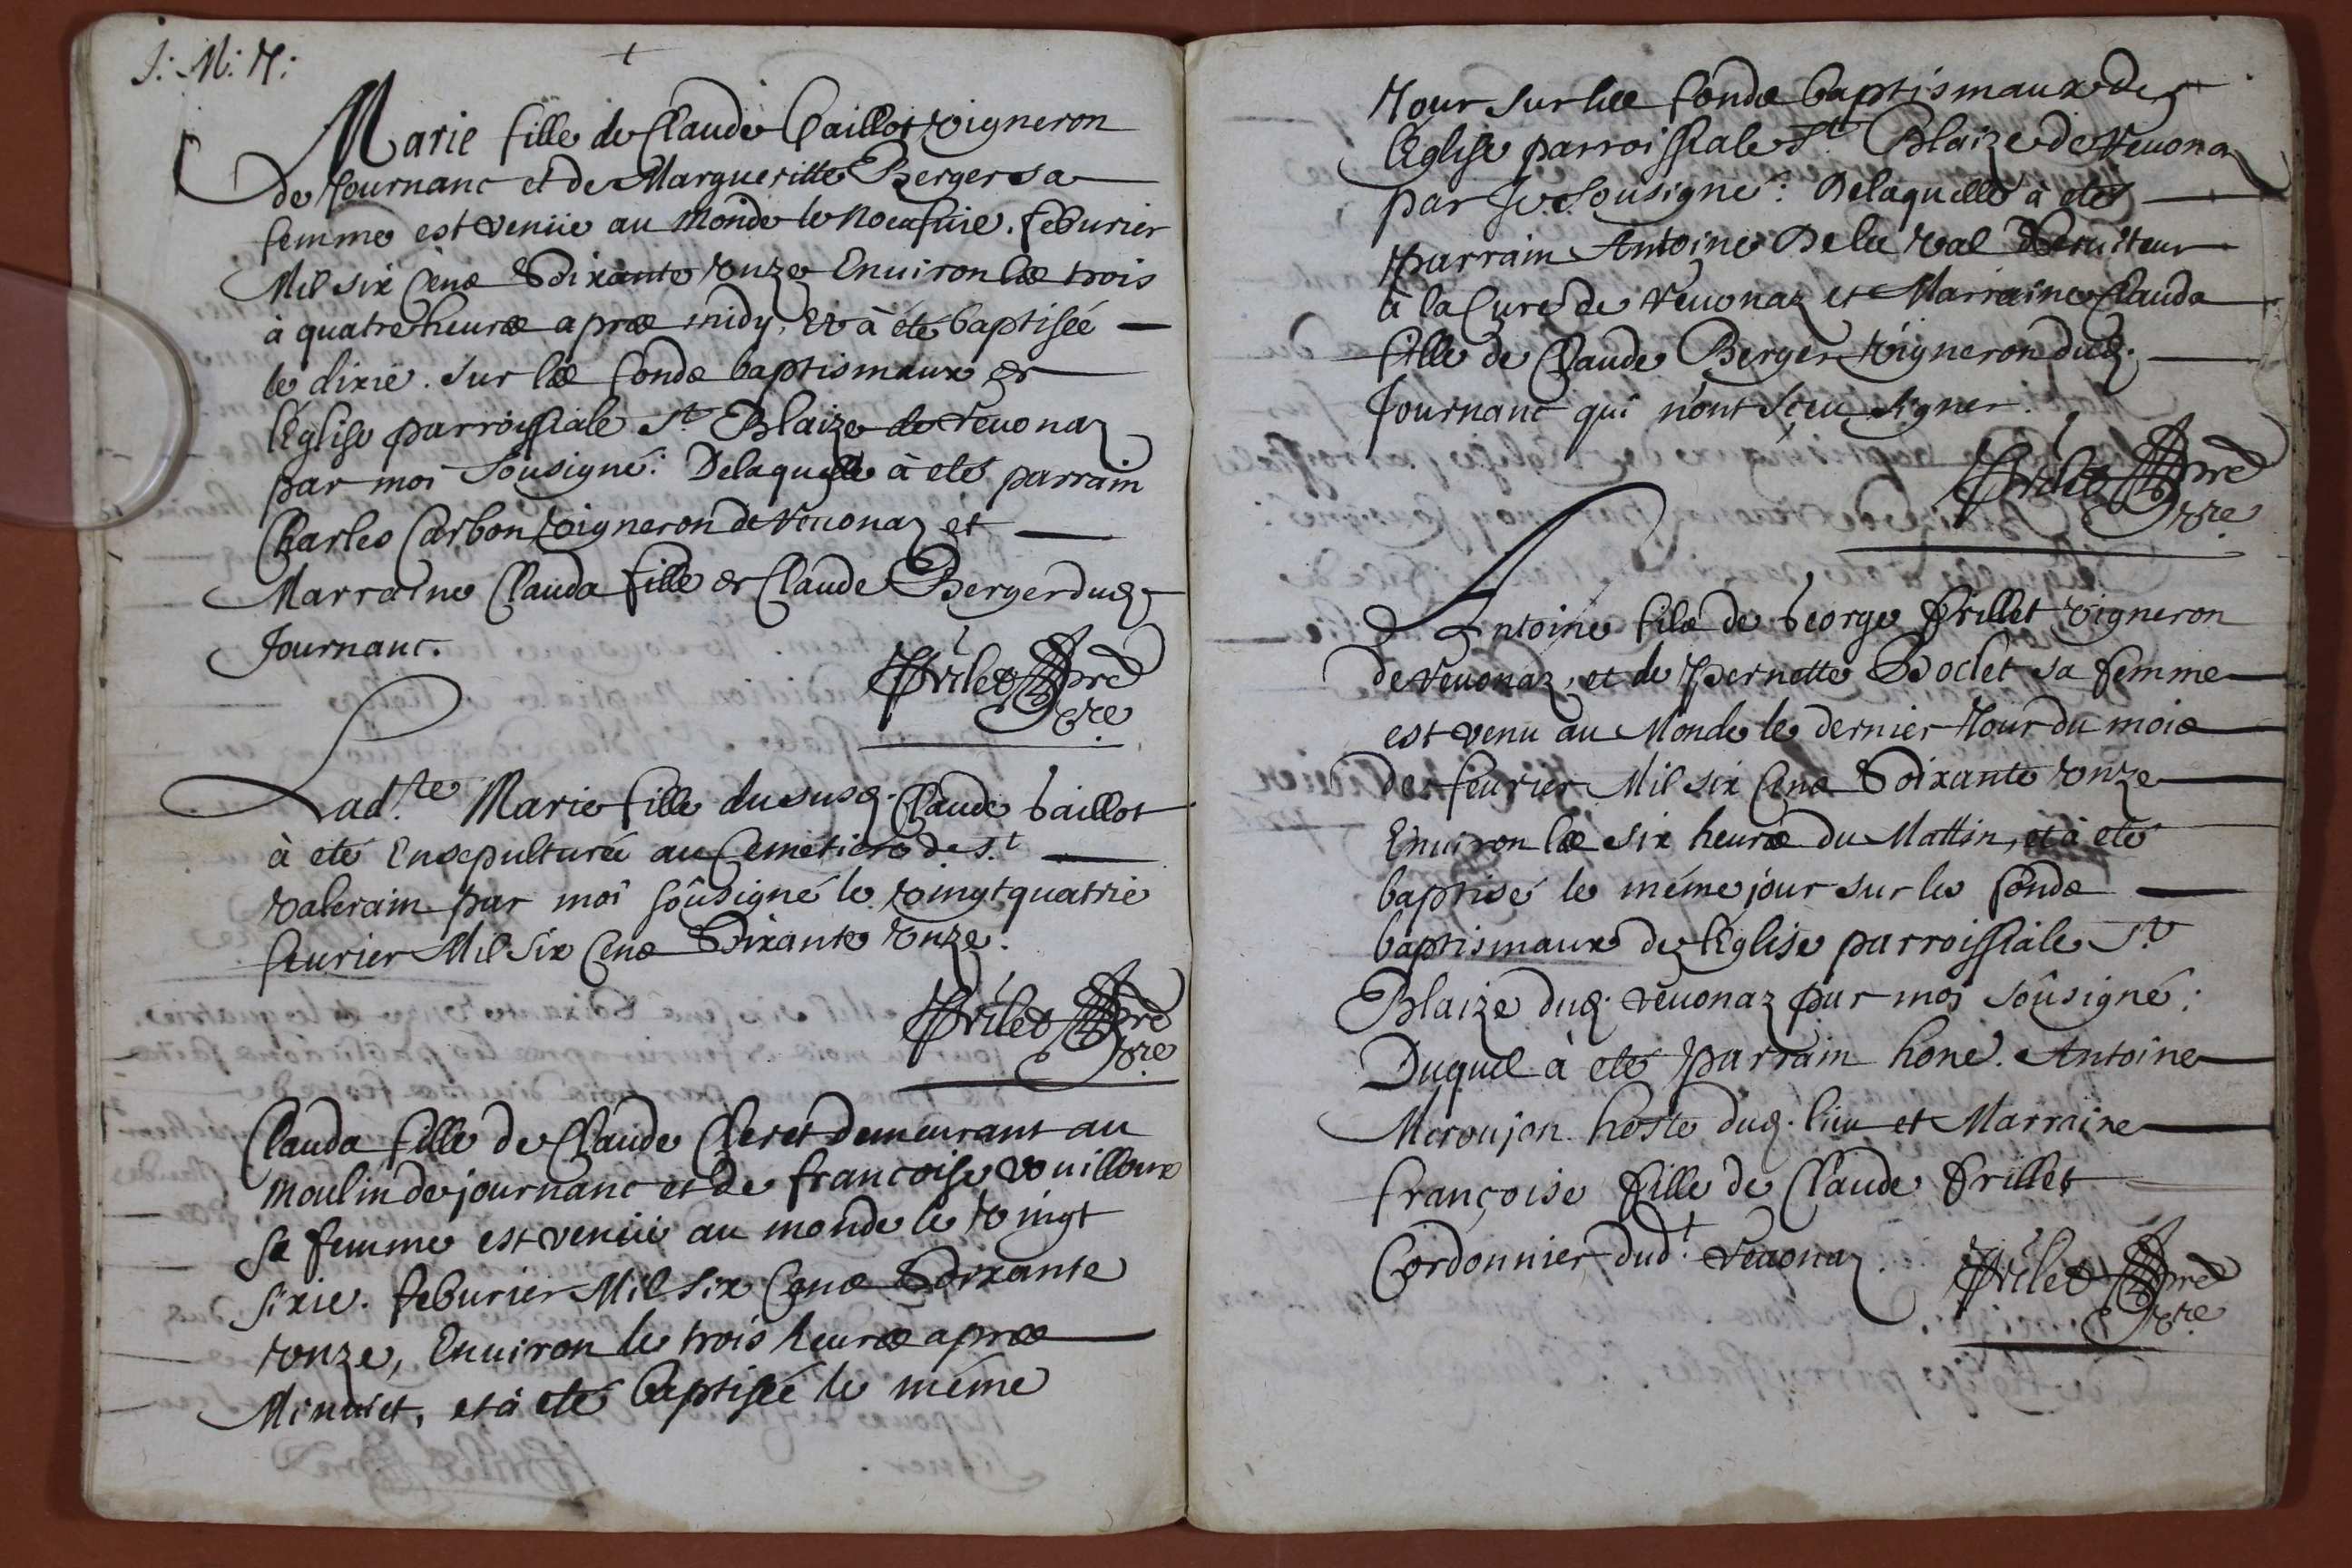 J: M: J:
Marie fille de Claude Caillot vigneron
de Journanc et de Margueritte Berger sa
femme est venüe au Monde le noeufuie. feburier
Mil six Cens Soixante Vnze Enuiron les trois
à quatre heures apres midy, Et à été baptisée
le dixie. sur les fonds baptismaux de
l'Eglise parroissiale St Blaize de Veuonaz
par moi Sousigné: Delaquelle à eté parrain
Charles Carbon vigneron de Veuonaz et
Marraine Clauda fille de Claude Berger dud.
Journanc.
pre
vre
Lad.te Marie fille du susd. Claude Caillot
à eté Ensepulturée au Cemetiere de S.t
Valerain par moi soûsigné le vingtquatrie
feurier Mil Six Cens Soixante Vnze.
pre
vre
Clauda fille de Claude Cleret demeurant au
moulin de journanc et de françoise Vuilloux
sa femme est venüe au monde le vingt
sixie. feburier Mil Six Cens Soixante
Vnze, Enuiron les trois heures apres
Minuict, et à eté baptisée le méme
Jour sur les fonds baptismaux de
l'Eglise parroissiale St Blaize de Veuonaz
par Je Sousigné: Delaquelle à eté
parrain Antoine Dela Val seruiteur
à la Cure de Veuonaz et Marraine Clauda
fille de Claude Berger vigneron dud.
Journanc qui n'ont sçeu signer.
pre
vre
Antoine fils de George Frillet vigneron
de Veuonaz, et de Pernette Boclet sa femme
est venu au Monde le dernier Jour du mois
de feurier Mil six Cens Soixante Vnze
Enuiron les six heures du Mattin, et à eté
baptisé le méme jour sur les fonds
baptismaux de l'Eglise parroissiale St
Blaize dud. Veuonaz par moi soûsigné:
Duquel à eté parrain hone. Antoine
Meroujon hoste dud. lieu et Marraine
françoise fille de Claude frillet
Cordonnier dud.t Veuonaz.
pre
vre